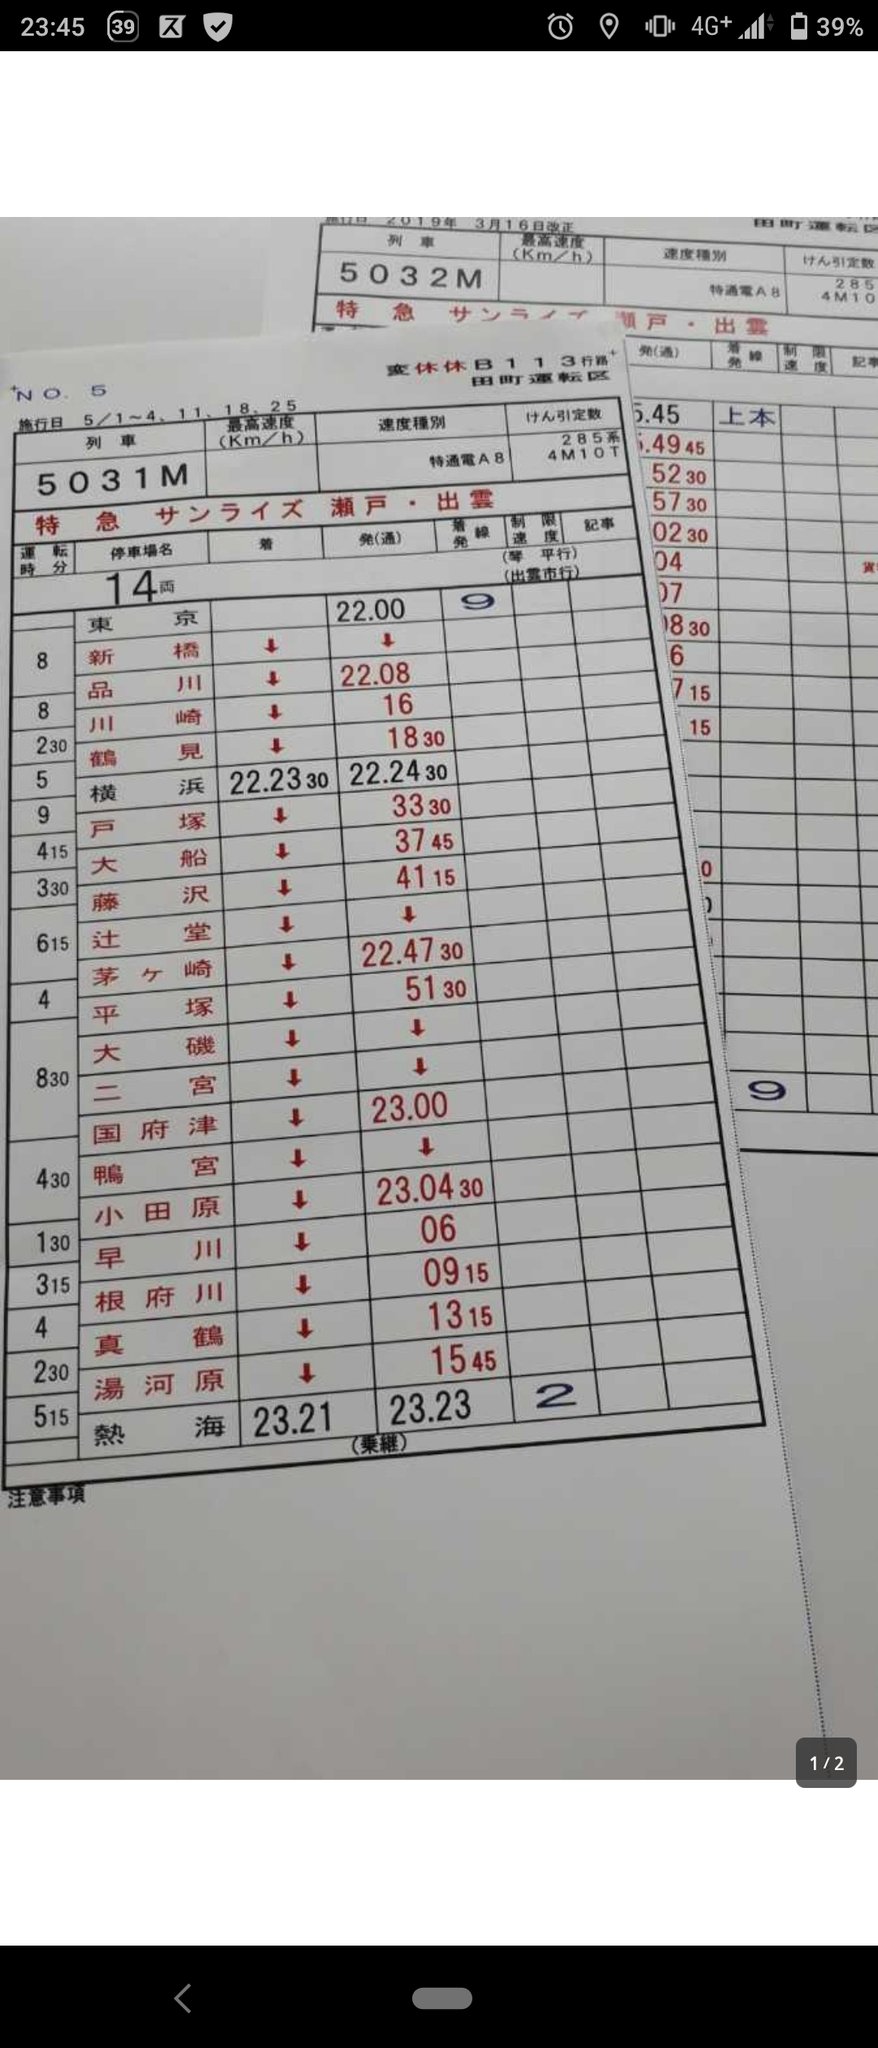 23:45 39 4G+ 39%
2019年 3月16日改正 田町運転区
列車 最高速度(Km/h) 速度種別 けん引定数
5032M 特通電A8 285 4M10
特急 サンライズ 瀬戸・出雲
発(通) 着発線 制限速度 記事
5.45 上本
5.49 45
52 30
57 30
02 30
04
07
08 30
6
7 15
15
0
9
NO. 5 変休休B113行路
田町運転区
施行日 5/1~4、11、18、25
列車 最高速度(Km/h) 速度種別 けん引定数
5031M 特通電A8 285系 4M10T
特急 サンライズ 瀬戸・出雲
運転時分 停車場名 着 発(通) 着発線 制限速度 記事
14両 (琴平行)
(出雲市行)
東京 22.00 9
新橋 ↓ ↓
8 品川 ↓ 22.08
8 川崎 ↓ 16
2 30 鶴見 ↓ 18 30
5 横浜 22.23 30 22.24 30
9 戸塚 ↓ 33 30
4 15 大船 ↓ 37 45
3 30 藤沢 ↓ 41 15
辻堂 ↓ ↓
6 15 茅ヶ崎 ↓ 22.47 30
4 平塚 ↓ 51 30
大磯 ↓ ↓
8 30 二宮 ↓ ↓
国府津 ↓ 23.00
鴨宮 ↓ ↓
4 30 小田原 ↓ 23.04 30
1 30 早川 ↓ 06
3 15 根府川 ↓ 09 15
4 真鶴 ↓ 13 15
2 30 湯河原 ↓ 15 45
5 15 熱海 23.21 23.23 2
(乗継)
注意事項
1/2